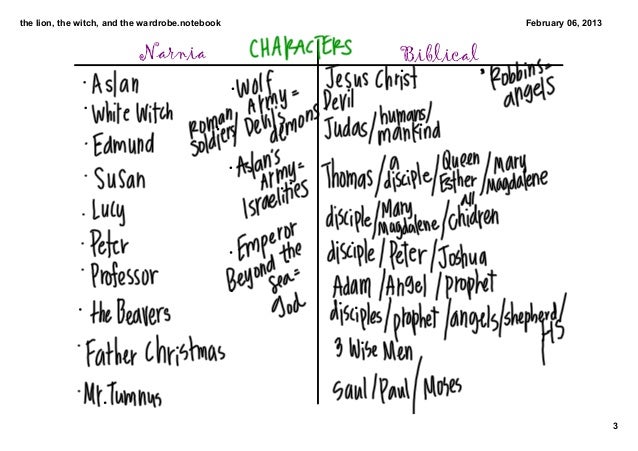 the lion, the witch, and the wardrobe.notebook
February 06, 2013
Narnia
CHARACTERS
Biblical
· Aslan
· White Witch
· Edmund
· Susan
· Lucy
· Peter
· Professor
· the Beavers
· Father Christmas
· Mr. Tumnus
· Wolf
Army =
Roman
Soldiers/Devil's
demons
· Aslan's
Army =
Israelities
· Emperor
Beyond the
Sea =
God
Jesus Christ
Devil
Judas/humans/
mankind
Thomas/a disciple/Queen Esther/Mary Magdalene
disciple/Mary Magdalene/all children
disciple/Peter/Joshua
Adam/Angel/prophet
disciples/prophet/angels/shepherd/
HS
3 Wise Men
Saul/Paul/Moses
· Robbins =
angels
3